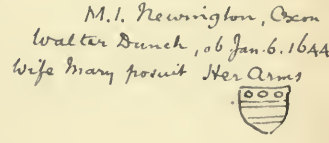 M.I. Newington, Oxon
Walter Dunch, ob Jan. 6. 1644
Wife Mary posuit Her Arms